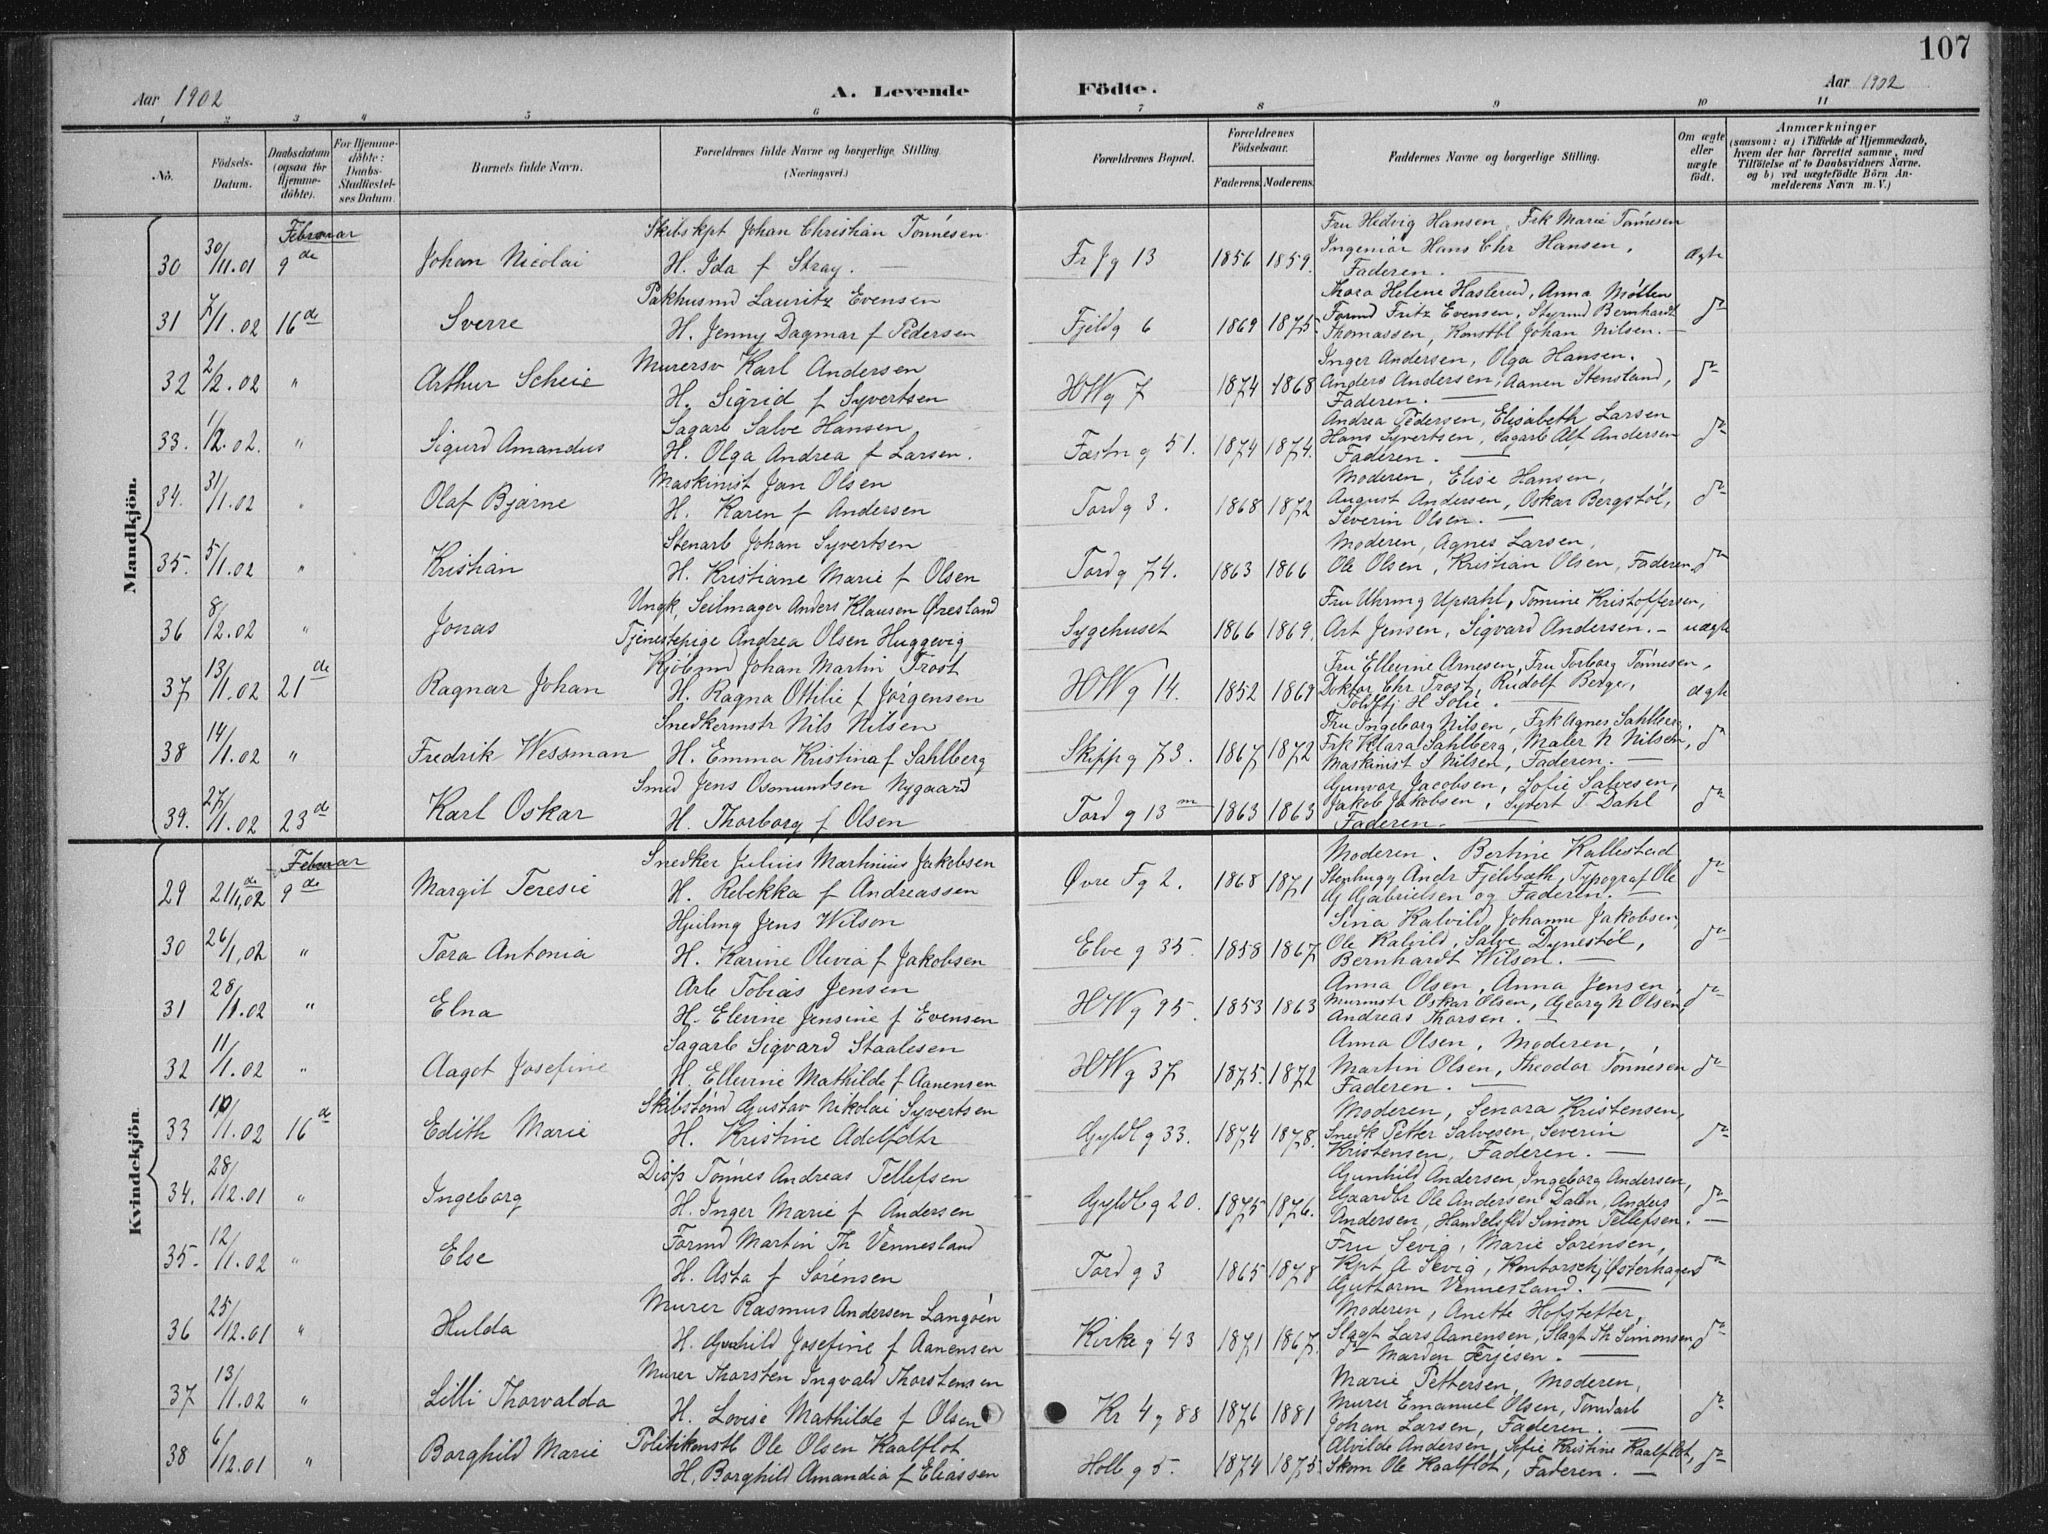 107
Aar 1902 A. Levende Födte. Aar 1902
1 2 3 4 5 6 7 8 9 10 11
No. Födsels-Datum. Daabsdatum (ogsaa för Hjemme-döbte). For Hjemme-döbte: Daabs-Stadfæstel-ses Datum. Barnets fulde Navn. Forældrenes fulde Navne og borgerlige Stilling. (Næringsvei.) Forældrenes Bopæl. Forældrenes Födselsaar. Faderens. Moderens. Faddernes Navne og borgerlige Stilling. Om ægte eller uægte födt. Anmærkninger (saasom: a) i Tilfælde af Hjemmedaab, hvem der har forrettet samme, med Tilföielse af to Daabsvidners Navne. og b) ved uægtefödte Börn An-melderens Navn m. V.)
Mandkjön.
Februar
Skibskpt Johan Christian Tönnesen Fru Hedvig Hansen, Frk Marie Tönnesen
30 30/11.01 9de Johan Nicolai H. Ida f Stray. Fr Jg 13 1856 1859. Ingeniör Hans Chr Hansen, ægte
Faderen.
Pakhusmd Lauritz Evensen Thora Helene Haslerud, Anna Möller
31 7/1.02 16de Sverre H. Jenny Dagmar f Pedersen Fjeldg 6 1869 1875. Formd Fritz Evensen, Styrmd Bernhardt do
Thomassen, Konstbl Johan Nilsen.
Murersv Karl Andersen Inger Andersen, Olga Hansen.
32 2/2.02 " Arthur Scheie H. Sigrid f Syvertsen HWg 7 1874 1868 Anders Andersen, Aanen Stensland, do
Faderen.
Sagarb Salve Hansen, Andrea Pedersen, Elisabeth Larsen
33. 1/2.02. " Sigurd Amandus H. Olga Andrea f Larsen. Fæstn g 51. 1874 1874. Hans Syvertsen, Sagarb Alf Andersen do
Faderen.
Maskinist Jan Olsen Moderen, Elise Hansen,
34. 31/1.02 " Olaf Bjarne H. Karen f Andersen Tordg 3. 1868 1872 August Andersen, Oskar Bergstöl, do
Severin Olsen.
Stenarb Johan Syvertsen Moderen, Agnes Larsen,
35. 5/1.02 " Kristian H. Kristiane Marie f Olsen Tordg 74. 1863 1866 Ole Olsen, Kristian Olsen, Faderen. do
Ungk Seilmager Anders Klausen Øresland Fru Uhring Upsahl, Tomine Kristoffersen,
36 8/12.02 " Jonas Tjenestepige Andrea Olsen Huggevig Sygehuset 1866 1869. Art Jensen, Sigvard Andersen. uægte
Kjöbmd Johan Martin Frost Fru Ellevine Arnesen, Fru Torborg Tönnesen,
37 13/1.02 21de Ragnar Johan H. Ragna Othilie f Jörgensen HWg 14. 1852 1869 Doktor Chr Frost, Rudolf Berge, ægte
Toldftj H Solie.
Snedkermstr Nils Nilsen Fru Ingeborg Nilsen, Frk Agnes Sahlberg,
38 14/1.02 " Fredrik Wessman H. Emma Kristina f Sahlberg Skippg 73. 1867 1872 Frk Klara Sahlberg, Maler N Nilsen, do
Maskinist S Nilsen, Faderen.
Smed Jens Osmundsen Nygaard Gunvor Jacobsen, Sofie Salvesen,
39. 27/1.02 23de Karl Oskar H. Thorborg f Olsen Tord g 13 m 1863 1863 Jakob Jakobsen, Syvert T Dahl do
Faderen.
Kvindekjön.
Februar
Snedker Julius Martinius Jakobsen Moderen. Bertine Kallestad
29 21/1,02 9de Margit Teresie H. Rebekka f Andreassen Øvre Fg 2. 1868 1871 Stenhugg Andr Fjeldsæth, Typograf Ole do
G Gabrielsen og Faderen.
Hjulmg Jens Wilson Sina Kalvild, Johanne Jakobsen,
30 26/1,02 " Tora Antonia H. Karine Olivia f Jakobsen Elve g 35. 1858 1867 Ole Kalvild, Salve Dynestöl, do
Bernhardt Wilson.
Arb Tobias Jensen Anna Olsen, Anna Jensen,
31 28/1.02 " Elna H. Elevine Jensine f Evensen HWg 95. 1853 1863 Murmstr Oskar Olsen, Georg N Olsen, do
Andreas Thorsen.
Sagarb Sigvard Staalesen Anna Olsen, Moderen,
32 11/1.02 " Aagot Josefine H. Ellevine Mathilde f Aanensen HWg 37 1875. 1872 Martin Olsen, Theodor Tönnesen do
Faderen.
Skibstömd Gustav Nikolai Syvertsen Moderen, Senora Kristensen,
33 10/1.02 16de Edith Marie H. Kristine Adelfdtr Gyldl g 33. 1874 1878. Smedk Petter Salvesen, Severin do
Kristensen, Faderen.
Disp Tönnes Andreas Tellefsen Gunhild Andersen, Ingeborg Andersen,
34. 28/12.01 " Ingeborg H. Inger Marie f Andersen Gyldl g 20. 1875 1876. Gaardbr Ole Andersen Dalen, Anders do
Andersen, Handelsfld Simon Tellefsen.
Formd Martin Th Vennesland Fru Sevig, Marie Sörensen,
35. 12/1.02 " Else H. Asta f Sörensen Tordg 3 1865 1878 Kpt A Sevig, Kontorschj Østerhagen do
Guttorm Vennesland.
Murer Rasmus Andersen Langöen Moderen, Anette Hofstetter,
36 25/12.01 " Hulda H. Gunhild Josefine f Aanensen Kirke g 43 1871 1867. Slagt Lars Aanensen, Slagt Th Simonsen, do
Mardon Terjesen.
Murer Thorsten Ingvald Thorstensen Marie Pettersen, Moderen,
37 13/1.02 " Lilli Thorvalda H. Lovise Mathilde f Olsen Kr 4 g 88 1876 1881 Murer Emanuel Olsen, Tomtarb do
Johan Larsen, Faderen.
Politikonstb Ole Olsen Kaalflot Alvilde Andersen, Sofie Kristine Kaalflot,
38 6/12.01 " Borghild Marie H. Borghild Amandia f Eliassen Holbg 5. 1874 1875 Skom Ole Kaalflot, Faderen. do